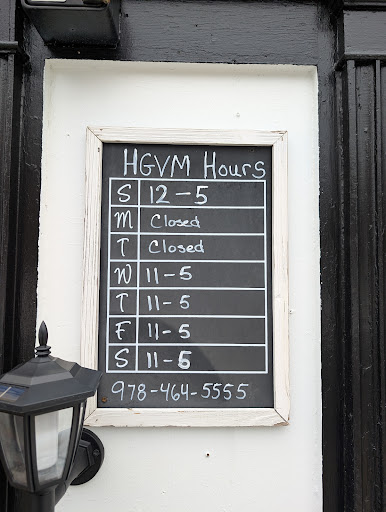 HGVM Hours
S 12-5
M Closed
T Closed
W 11-5
T 11-5
F 11-5
S 11-5
978-464-5555